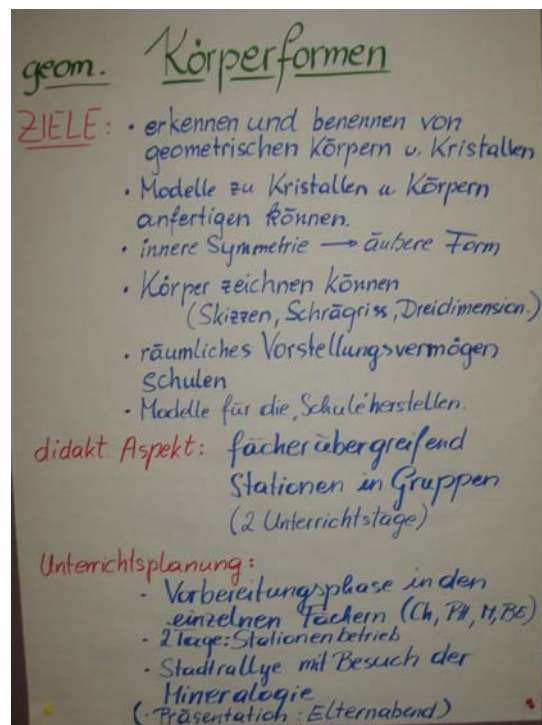 geom. Körperformen
ZIELE: • erkennen und benennen von
geometrischen Körpern u. Kristallen
• Modelle zu Kristallen u. Körpern
anfertigen können.
• innere Symmetrie → äußere Form
• Körper zeichnen können
(Skizzen, Schrägriss, Dreidimension.)
• räumliches Vorstellungsvermögen
schulen
• Modelle für die Schule herstellen.
didakt. Aspekt: fächerübergreifend
Stationen in Gruppen
(2 Unterrichtstage)
Unterrichtsplanung:
• Vorbereitungsphase in den
einzelnen Fächern (Ch, PH, M, BE)
• 2 Tage: Stationenbetrieb
• Stadtrallye mit Besuch der
Mineralogie
(• Präsentation: Elternabend)